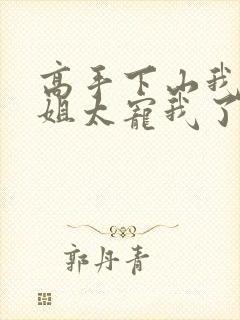 高手下山我
姐太宠我了
郭丹青